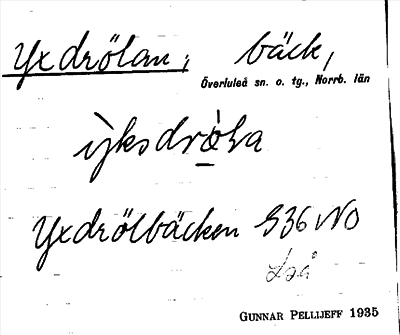 Yxdrölan, bäck,
Överluleå sn. o. tg., Norrb. län
ỳksdrò̱La
Yxdrölbäcken S36 NO
GUNNAR PELLIJEFF 1935